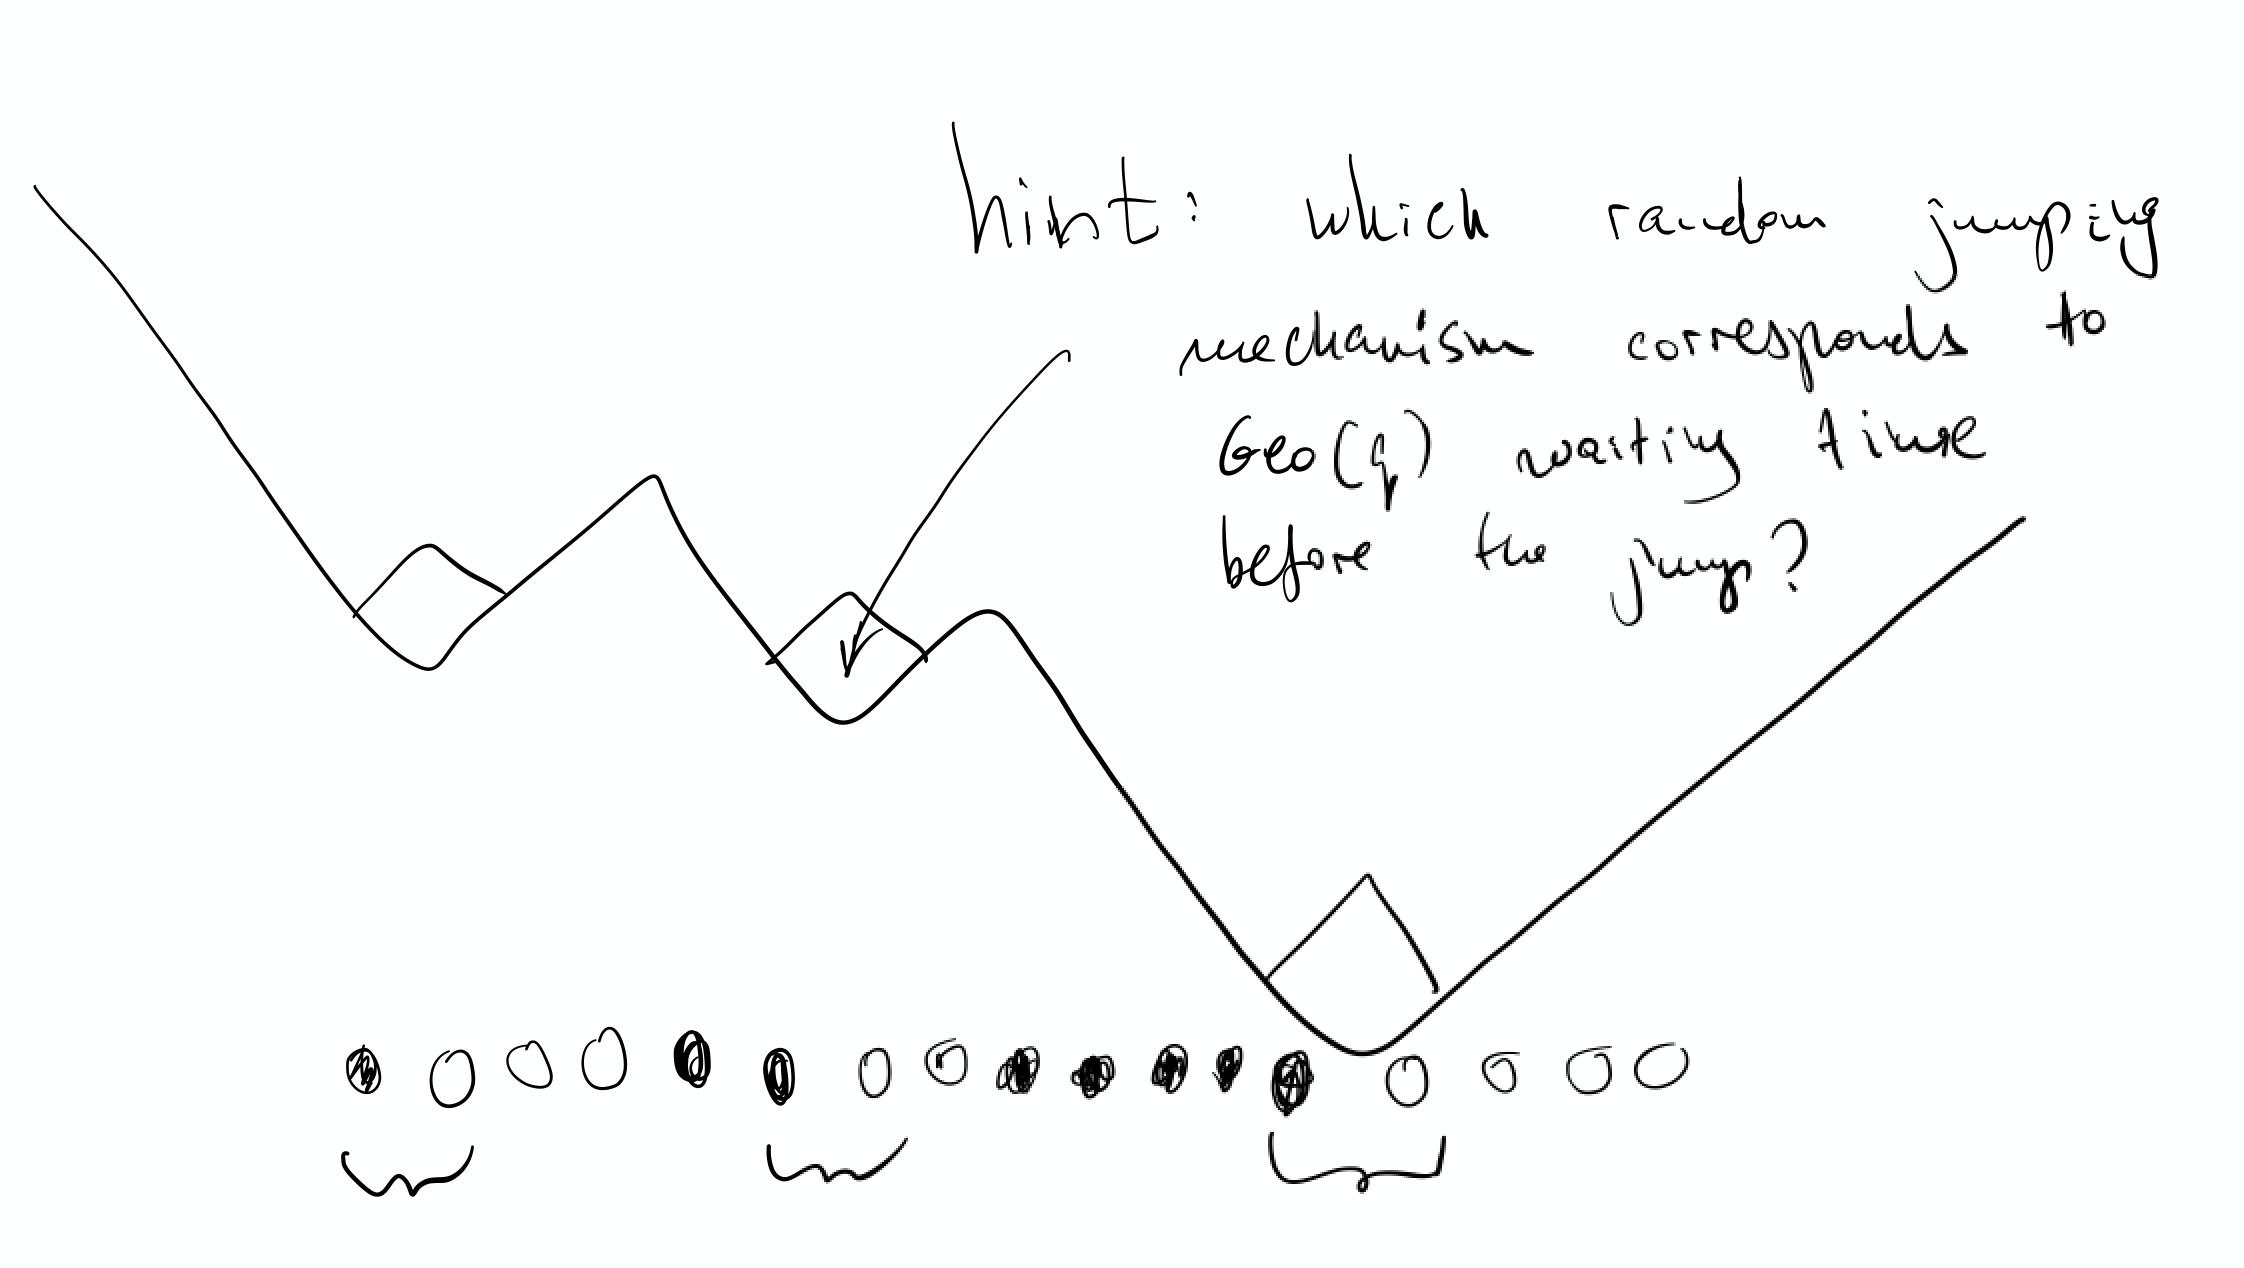 hint: which random jumping
mechanism corresponds to
Geo(q) waiting time
before the jump?